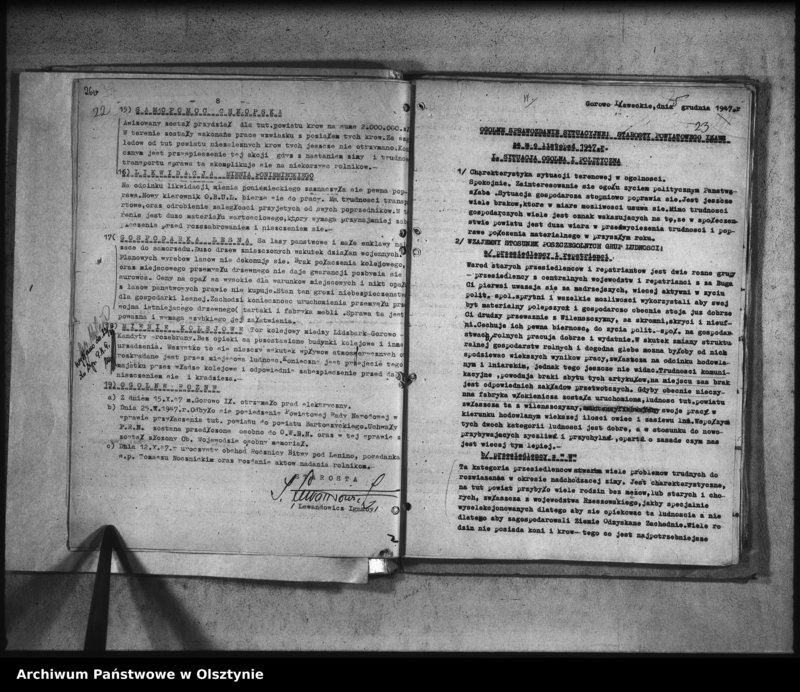 26v
- 8 -
22
15) SAMOPOMOC CHŁOPSKA
Awizowany został przydział dla tut.powiatu krow na sume 2.000.000.zł
W terenie zostały wykonane prace wzwiazku z podziałem tych krow.Za
ledow od tut powiatu niezaleznych krow tych jeszcze nie otrzymano.
cznym jest przyspieszenie tej akcji gdyz z nastaniem zimy i trudnos
transportu sprawa ta skomplikuje sie na niekorzysc rolnikow.-
16) LIKWIDACJA MIENIA PONIEMIECKIEGO
Na odcinku likwidacji mienia poniemieckiego zaznaczyła sie pewna pop-
rawa.Nowy kierownik O.R.U.L. bierze sie do pracy. Ma trudnosci transp
rtowe,oraz odrobienie zaległosci przyjetych od swych poprzednikow.W t
renie jest duzo materiału wartosciowego,ktory wymaga przynajmniej zab
pieczenia przed rozszabrowaniem i niszczeniem sie.-
17( GOSPODARKA LESNA Sa lasy panstwowe i małe enklawy
zace do samorzadu.Duzo drzew zniszczonych wskutek działan wojennych.
Planowych wyrebow lasow nie dokonuje sie. Brak połaczenia kolejowego,
oraz miejscowego przemysłu drzewnego nie daje gwarancji pozbycia sie
surowca. Ceny na opał sa wysokie dla warunkow miejscowych i nikt opał
z lasow panstwowych prawie nie kupuje.Stan ten grozi niebezpieczenstw
dla gospodarki lesnej.Zachodzi koniecznosc uruchomienia przemysłu prz
wojna istniejacego drzewnego( tartaki i fabryka mebli .Sprawa ta jest
powazna i wymaga szybkiego jej załatwienia.
18) MIENIE KOLEJOWE Tor kolejowy miedzy Lidzbark-Gorowo -
Kandyty -rozebrany.Bez opieki sa pozostawione budynki kolejowe i inne
urzadzenia. Wszystko to sie niszczy wskutek wpływow atmosferycznych o
rozkradane jest przez miejscowa ludnosc.Konieczne jest przejecie tego
majatku przez władze kolejowe i odpowiednie zabezpieczenie przed da
niszczeniem sie i kradzieza.-
19) OGOLNE ROZNE
a) Z dniem 15.X.47 m.Gorowo Ił. otrzymało prad elektryczny.
b) Dnia 25.X.1947.r.Odbyło sie posiedzenie Powiatowej Rady Narodowej w
sprawie przyłaczenia tut. powiatu do powiatu Bartoszyckiego.Uchwały
P.R.N. zostana przedłozone osobno do O.W.R.N. oraz w tej sprawie z
został złozony Ob. Wojewodzie osobny memoriał.
c) Dnia 12.X.47.r uroczysty obchod Rocznicy Bitwy pod Lenino, poradanka
s.p. Tomaszu Nocznickim oraz rozdanie aktow nadania rolnikom.-
STAROSTA
/ Lewandowicz Ignacy/
2
Gorowo Iławeckie,dnia 5 grudnia 1947.r
23
OGOLNE SPRAWOZDANIE SYTUACYJNE STAROSTY POWIATOWEGO IŁAWY
za m-c listopad 1947.r-
I. SYTUACJA OGOLNA I POLITYCZNA
1/ Charakterystyka sytuacji terenowej w ogolnosci.
Spokojnie. Zainteresowanie sie ogołu zyciem politycznym Panstwa-
słabe .Sytuacja gospodarcza stopniowo poprawia sie.Jest jeszcze
wiele brakow,ktore w miare mozliwosci usuwa sie.Mimo trudnosci
gospodarczych wiele jest oznak wskazujacych na to,ze w społeczen-
stwie powiatu jest duza wiara w przezwyciezenie trudnosci i pop-
rawe połozenia materialnego w przyszłym roku.
2/ WZAJEMNY STOSUNEK POSZCZEGOLNYCH GRUP LUDNOSCI:
a/ przesiedlency i repatrianci.
Wsrod starych przesiedlencow i repatriantow jest dwie rozne grupy
- przesiedlency z centralnych wojewodztw i repatrianci z za Buga
Ci pierwsi uwazaja sie za madrzejszych, wiecej aktywni w zyciu
polit. społ.sprytni i wszelkie mozliwosci wykorzystali aby swoj
byt materialny polepszyc i gospodarczo obecnie stoja juz dobrze
Ci drudzy przewaznie z Wilenszczyzny, sa skromni,skryci i nieuf-
ni.Cechuje ich pewna biernosc, do zycia polit.-społ. na gospodar-
stwach rolnych pracuja dobrze i wydatnie.W skutek zmiany struktu
ralnej gospodarstw rolnych i dogodna glebe mozna byłoby od nich
spodziewac wiekszych wynikow pracy,zwłaszcza na odcinku hodowla-
nym i lniarskim, jednak tego jeszcze nie widac.Trudnosci komuni-
kacyjne ,powoduja braki zbytu tych artykułow,na miejscu zas brak
jest odpowiednich zakładow przetworczych. Gdyby obecnie nieczy-
nna fabryka włokiennicza została uruchomiona,ludnosc tut.powiatu
zwłaszcza ta z wilenszczyzny, swoje pracy w
kierunku hodowlanym wiekszej ilosci owiec i zasiewu lnu.Wspołzym
tych dwoch kategorii ludnosci jest dobre, a w stosunku do nowo-
przybywajacych zyczliwy i przychylny ,oparta o zasade czym nas
jest wiecej tym lepiej.-
Ta kategoria przesiedlencow stwarza wiele problemow trudnych do
rozwiazania w okresie nadchodzacej zimy. Jest charakterystyczne,
na tut powiat przybyło wiele rodzin bez mezow,lub starych i cho-
rych, zwłaszcza z wojewodztwa Rzeszowskiego,jakby specjalnie
wyselekcjonowanych dlatego aby sie opiekowac ta ludnoscia a nie
dlatego aby zagospodarowali Ziemie Odzyskane Zachodnie.Wiele ro
dzin nie posiada koni i krow-tego co jest najpotrzebniejsze
Archiwum Państwowe w Olsztynie